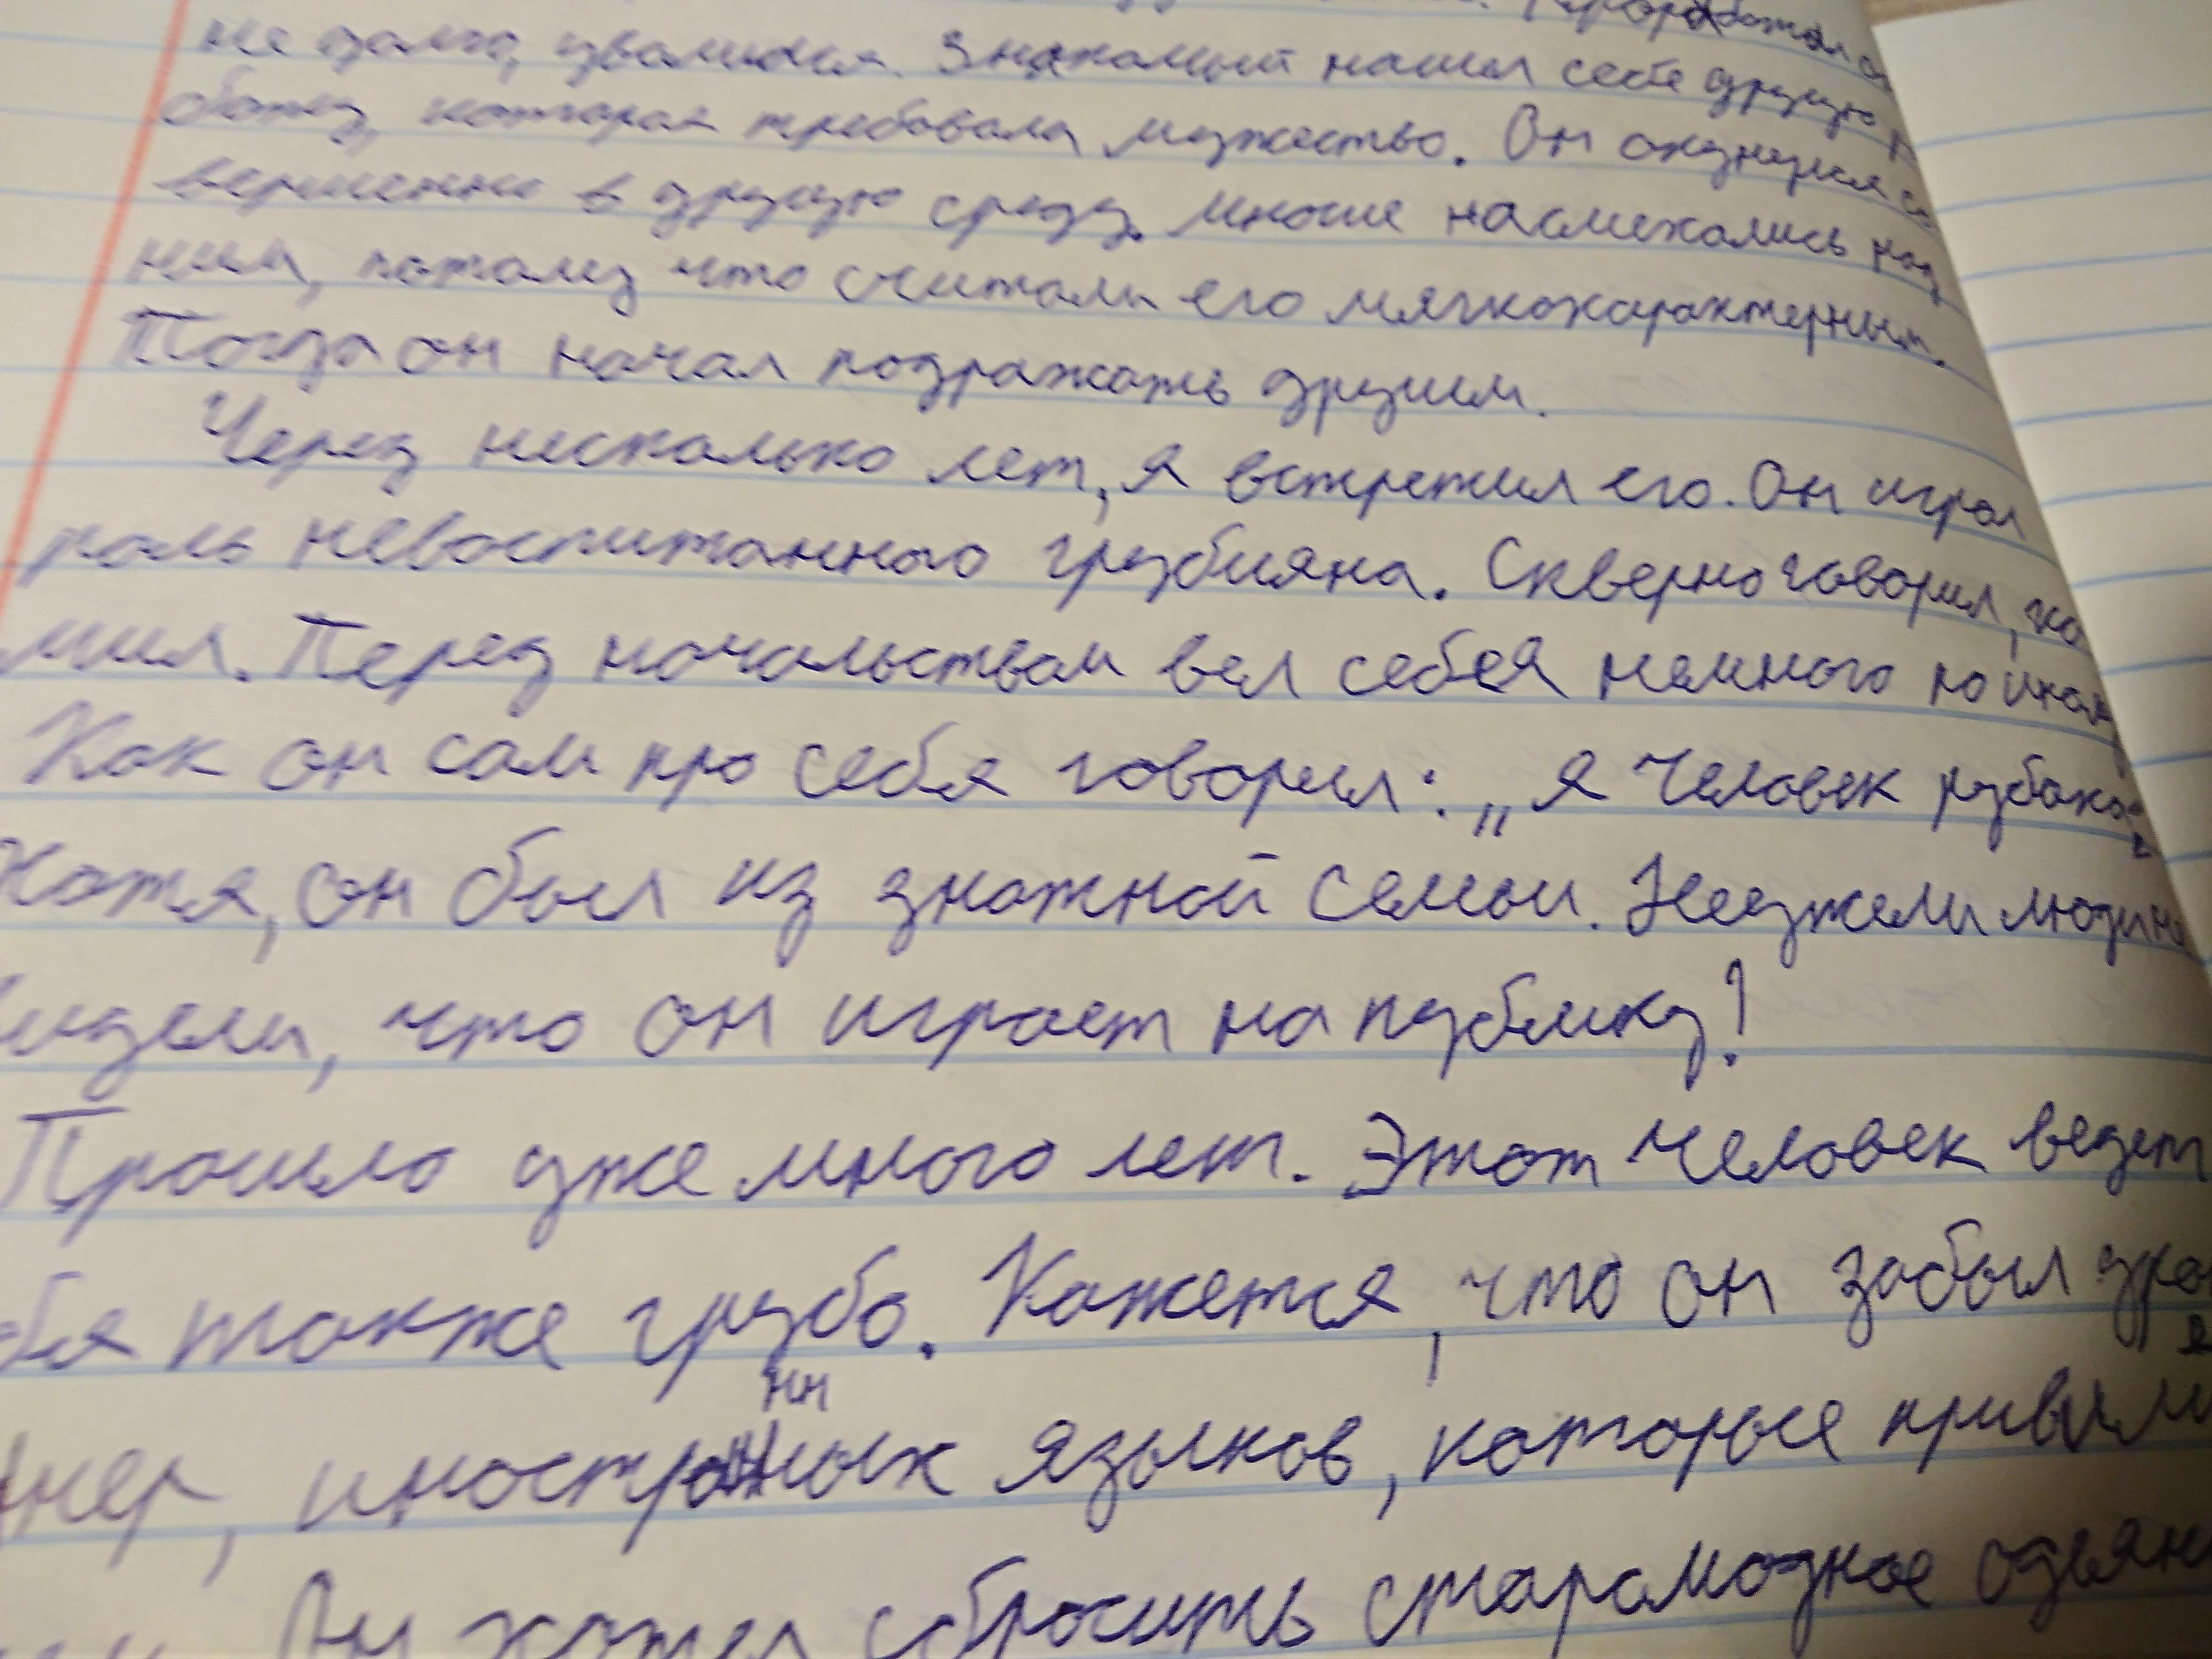 не долго, уволился. Знакомый нашел себе другую р
аботу, которая требовала мужество. Он окунулся со
вершенно в другую среду. Многие насмехались над
ним, потому что считали его мягкохарактерным.
Тогда он начал подражать другим.
Через несколько лет, я встретил его. Он играл
роль невоспитанного грубияна. Скверно говорил, ха
мил. Перед начальством вел себя немного по иному
Как он сам про себя говорил: „я человек рубаха"
Хотя, он был из знатной семьи. Неужели люди не
видели, что он играет на публику?
Прошло уже много лет. Этот человек ведет
бя также грубо. Кажется, что он забыл
нер, иностранных языков, которые привили
Он хотел сбросить старомодное одеяни